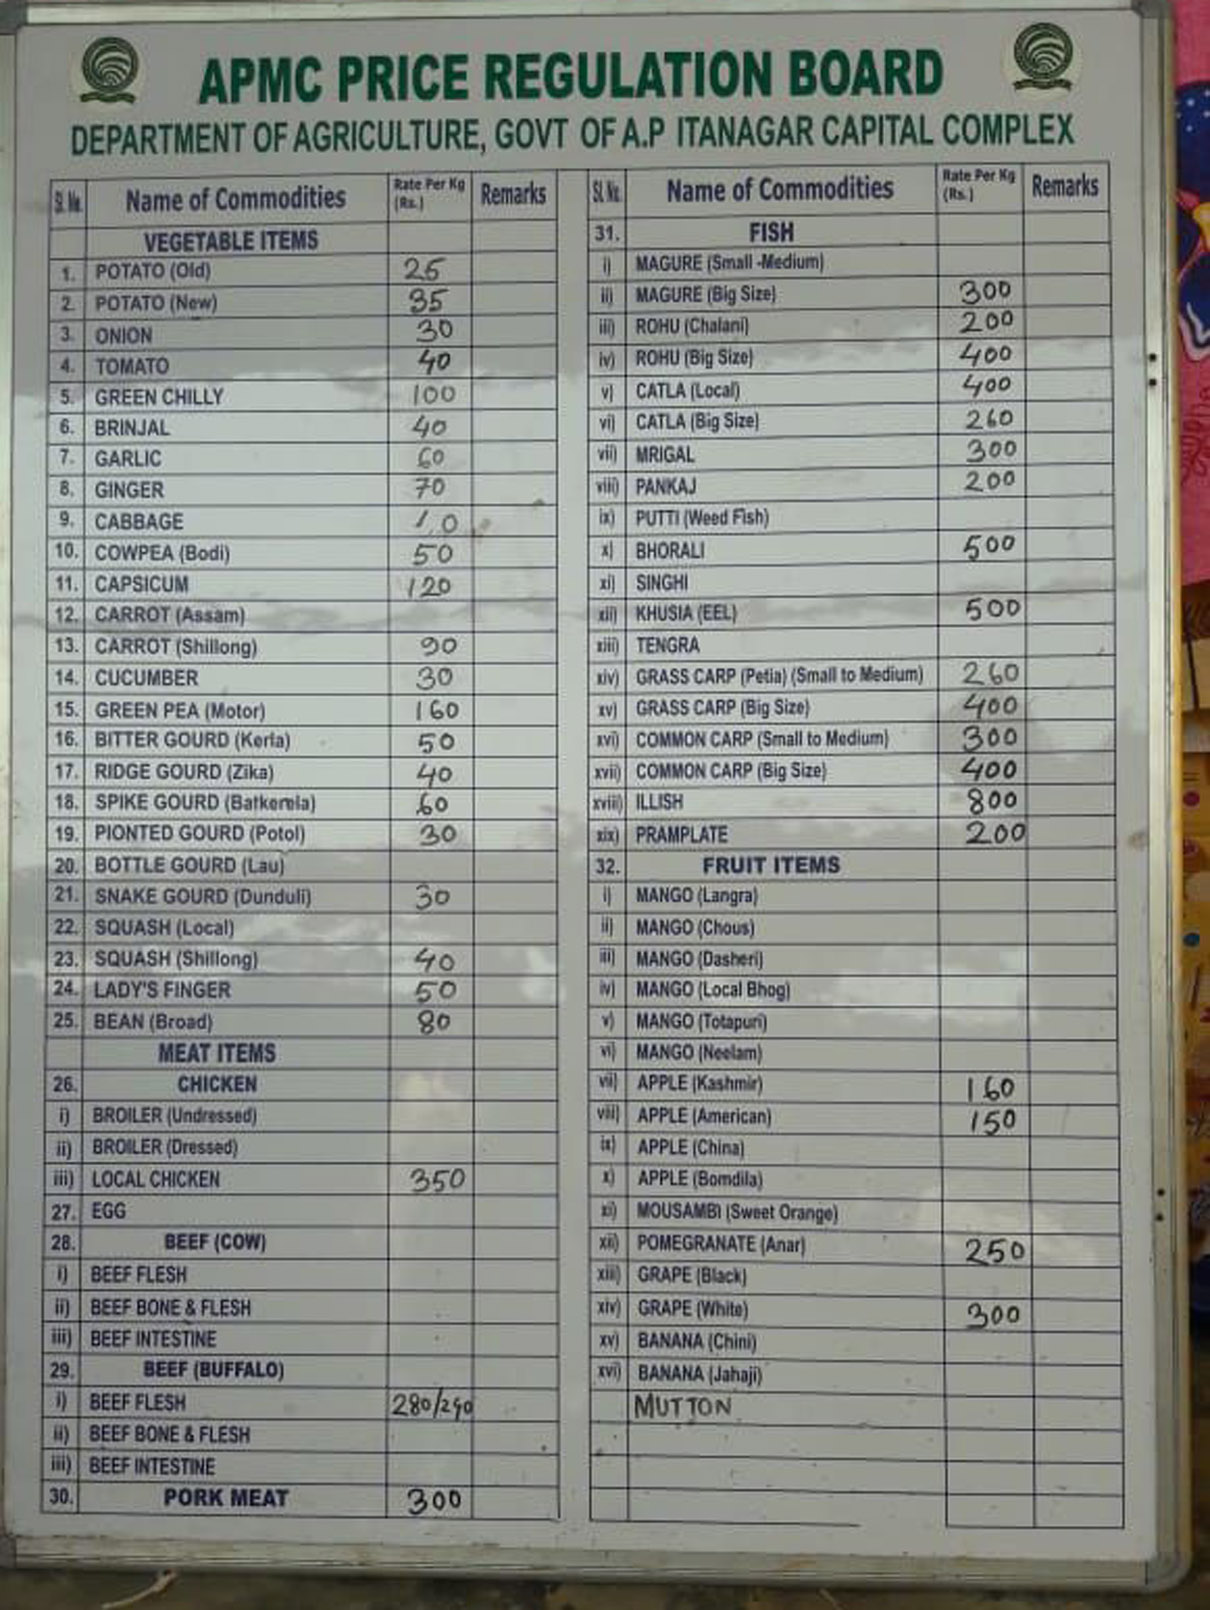 APMC PRICE REGULATION BOARD
DEPARTMENT OF AGRICULTURE, GOVT OF A.P ITANAGAR CAPITAL COMPLEX
Sl. No. Name of Commodities Rate Per Kg (Rs.) Remarks
VEGETABLE ITEMS
1. POTATO (Old) 25
2. POTATO (New) 35
3. ONION 30
4. TOMATO 40
5. GREEN CHILLY 100
6. BRINJAL 40
7. GARLIC 60
8. GINGER 70
9. CABBAGE
10. COWPEA (Bodi) 50
11. CAPSICUM 120
12. CARROT (Assam)
13. CARROT (Shillong) 90
14. CUCUMBER 30
15. GREEN PEA (Motor) 160
16. BITTER GOURD (Kerla) 50
17. RIDGE GOURD (Zika) 40
18. SPIKE GOURD (Batkerela) 60
19. PIONTED GOURD (Potol) 30
20. BOTTLE GOURD (Lau)
21. SNAKE GOURD (Dunduli) 30
22. SQUASH (Local)
23. SQUASH (Shillong) 40
24. LADY'S FINGER 50
25. BEAN (Broad) 80
MEAT ITEMS
26. CHICKEN
i) BROILER (Undressed)
ii) BROILER (Dressed)
iii) LOCAL CHICKEN 350
27. EGG
28. BEEF (COW)
i) BEEF FLESH
ii) BEEF BONE & FLESH
iii) BEEF INTESTINE
29. BEEF (BUFFALO)
i) BEEF FLESH 280/290
ii) BEEF BONE & FLESH
iii) BEEF INTESTINE
30. PORK MEAT 300
Sl. No. Name of Commodities Rate Per Kg (Rs.) Remarks
31. FISH
i) MAGURE (Small -Medium)
ii) MAGURE (Big Size) 300
iii) ROHU (Chalani) 200
iv) ROHU (Big Size) 400
v) CATLA (Local) 400
vi) CATLA (Big Size) 260
vii) MRIGAL 300
viii) PANKAJ 200
ix) PUTTI (Weed Fish)
x) BHORALI 500
xi) SINGHI
xii) KHUSIA (EEL) 500
xiii) TENGRA
xiv) GRASS CARP (Petia) (Small to Medium) 260
xv) GRASS CARP (Big Size) 400
xvi) COMMON CARP (Small to Medium) 300
xvii) COMMON CARP (Big Size) 400
xviii) ILLISH 800
xix) PRAMPLATE 200
32. FRUIT ITEMS
i) MANGO (Langra)
ii) MANGO (Chous)
iii) MANGO (Dasheri)
iv) MANGO (Local Bhog)
v) MANGO (Totapuri)
vi) MANGO (Neelam)
vii) APPLE (Kashmir) 160
viii) APPLE (American) 150
ix) APPLE (China)
x) APPLE (Bomdila)
xi) MOUSAMBI (Sweet Orange)
xii) POMEGRANATE (Anar) 250
xiii) GRAPE (Black)
xiv) GRAPE (White) 300
xv) BANANA (Chini)
xvi) BANANA (Jahaji)
MUTTON